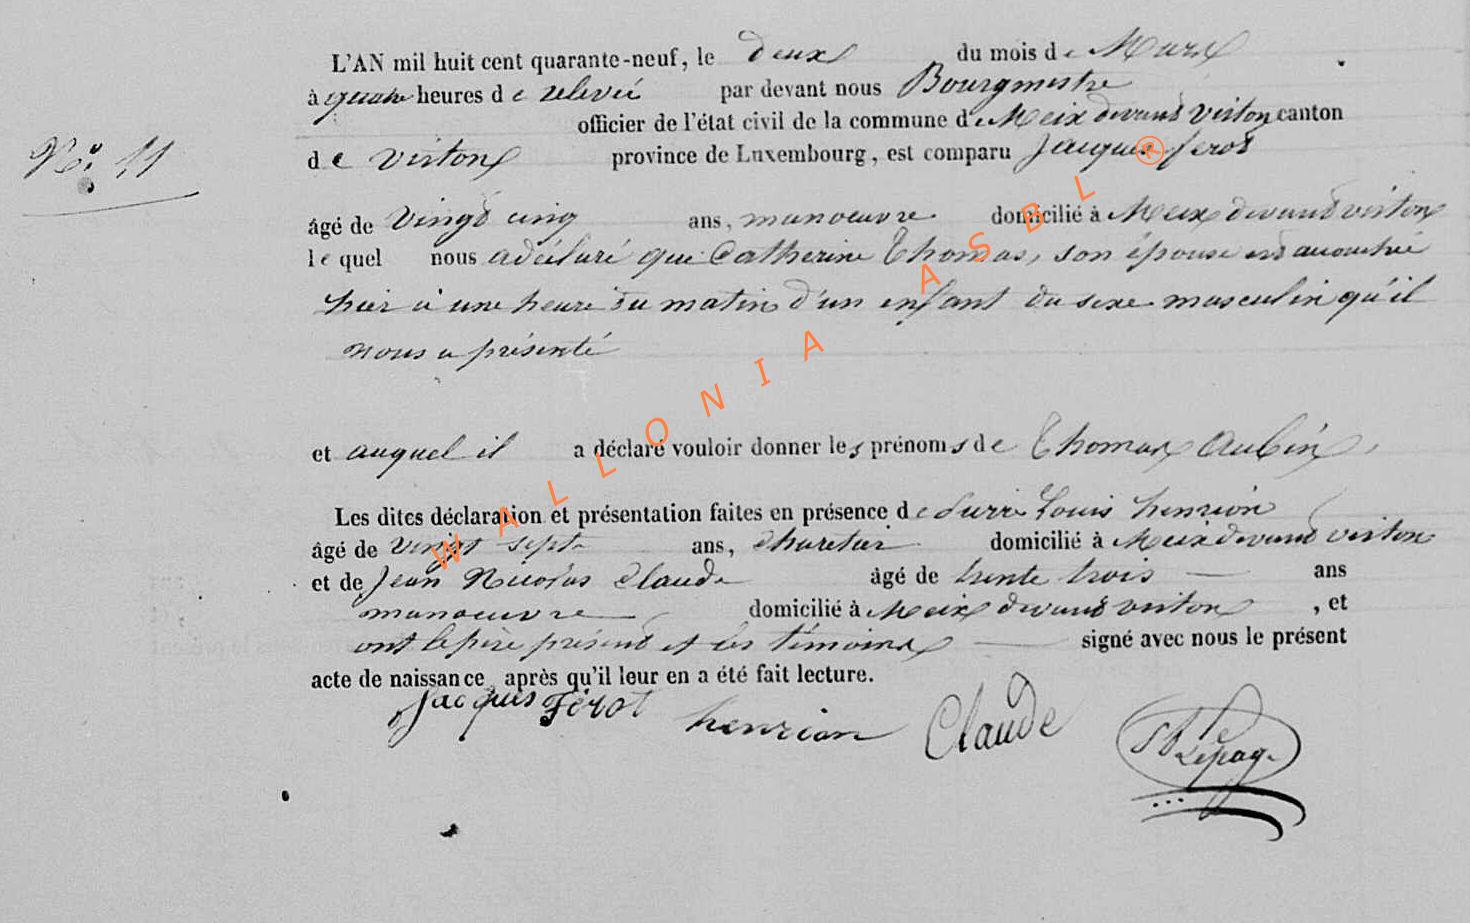 L'AN mil huit cent quarante-neuf, le deux du mois de Mars
à quatre heures de relevée par devant nous Bourgmestre
officier de l'état civil de la commune de Meix devant Virton canton
N° 11
de Virton province de Luxembourg, est comparu Jacques ferot
âgé de vingt cinq ans, manoeuvre domicilié à Meix devant virton
lequel nous a déclaré que Catherine Thomas, son épouse est accouchée
hier à une heure du matin d'un enfant du sexe masculin qu'il
nous a présenté
et auquel il a déclaré vouloir donner les prénoms de Thomas Aubin,
Les dites déclaration et présentation faites en présence de Louis henrion
âgé de vingt sept ans, charetier domicilié à Meix devant virton
et de Jean Nicolas Claude âgé de trente trois ans
manoeuvre domicilié à Meix devant virton, et
ont le père présent et les témoins signé avec nous le présent
acte de naissance après qu'il leur en a été fait lecture.
Jacques Férot henrion Claude Lepage
WALLONIA ASBL ®